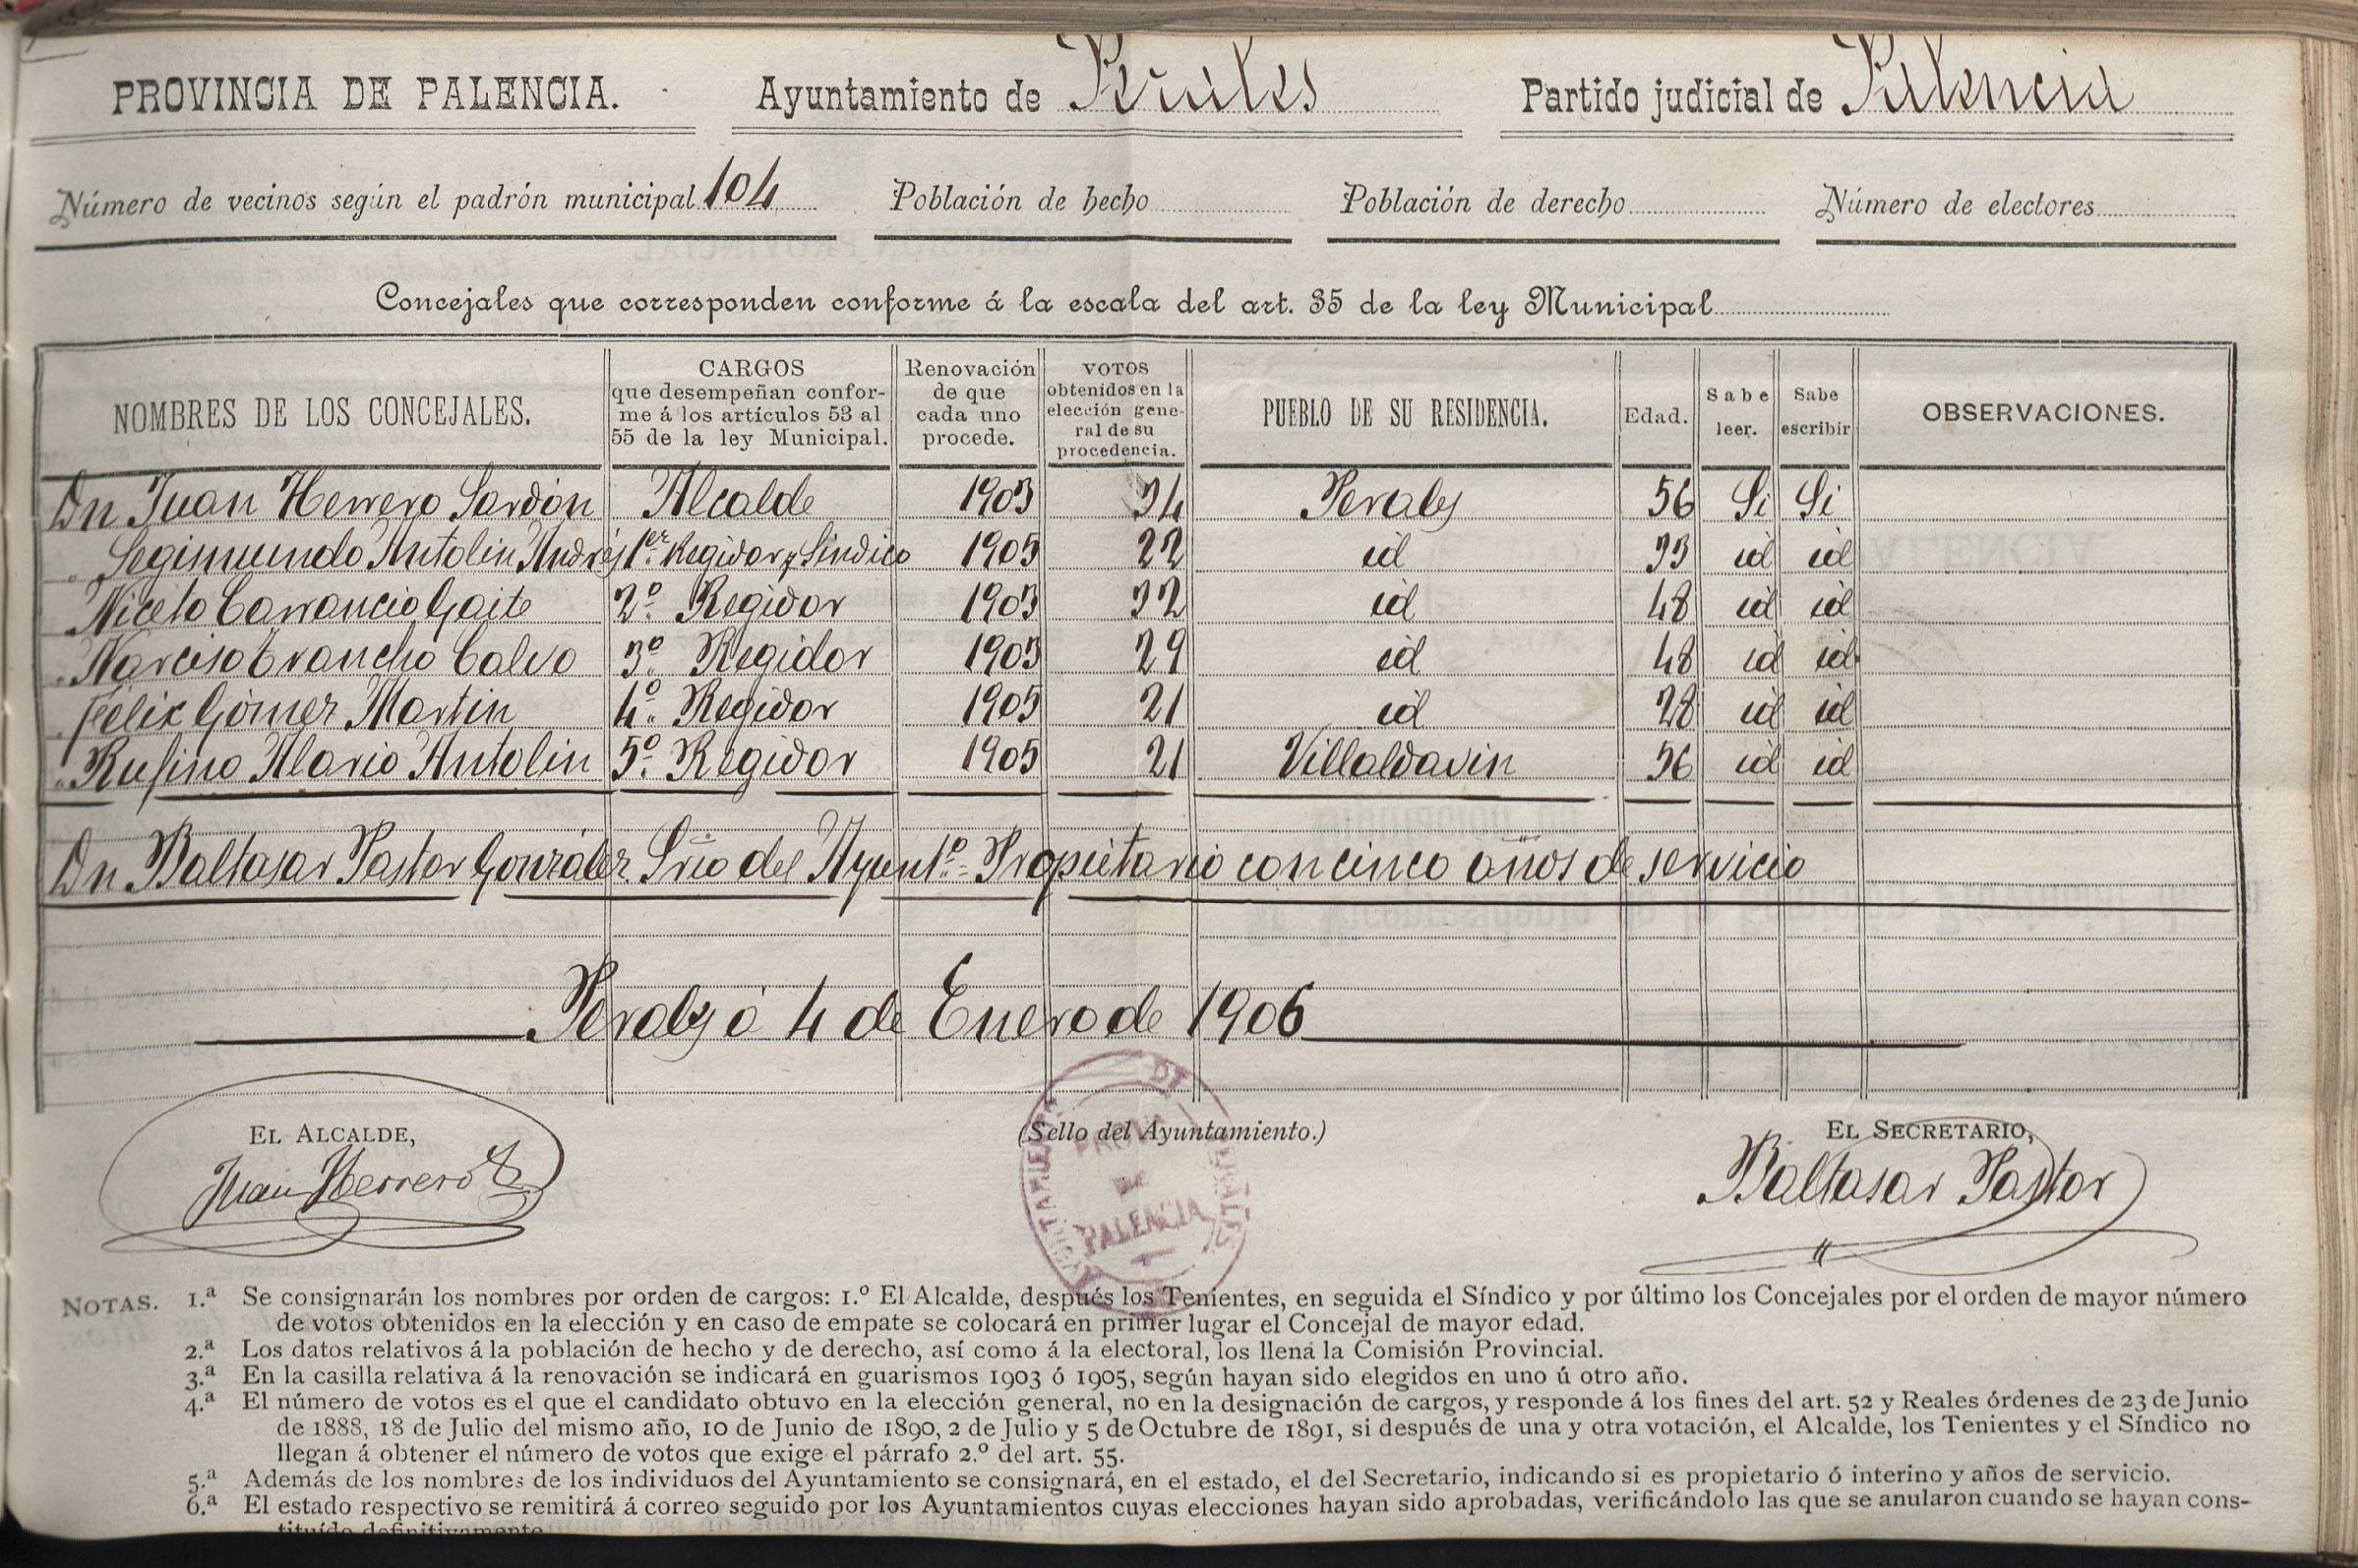 PROVINCIA DE PALENCIA. Ayuntamiento de Perales Partido judicial de Palencia
Número de vecinos según el padrón municipal 104 Población de hecho Población de derecho Número de electores
Concejales que corresponden conforme á la escala del art. 35 de la ley Municipal
NOMBRES DE LOS CONCEJALES. CARGOS que desempeñan confor- me á los artículos 53 al 55 de la ley Municipal. Renovación de que cada uno procede. VOTOS obtenidos en la elección gene- ral de su procedencia. PUEBLO DE SU RESIDENCIA. Edad. Sabe leer. Sabe escribir OBSERVACIONES.
Dn Juan Herrero Sardón Alcalde 1903 34 Perales 56 Si Si
" Segimundo Antolin Andrés 1er Regidor y Sindico 1905 22 id 33 id id
" Niceto Carrancio Gaite 2º Regidor 1903 32 id 48 id id
" Narciso Trancho Calvo 3º Regidor 1903 29 id 48 id id
" Felix Gómez Martin 4º Regidor 1905 21 id 28 id id
" Rufino Alario Antolin 5º Regidor 1905 21 Villaldavin 36 id id
Dn Baltasar Pastor González Srio del Ayuntº Propietario con cinco años de servicio
Perales á 4 de Enero de 1906
EL ALCALDE, (Sello del Ayuntamiento.) EL SECRETARIO,
Juan Herrero Baltasar Pastor
PROVA DE PALENCIA
NOTAS. 1.ª Se consignarán los nombres por orden de cargos: 1.º El Alcalde, después los Tenientes, en seguida el Síndico y por último los Concejales por el orden de mayor número
de votos obtenidos en la elección y en caso de empate se colocará en primer lugar el Concejal de mayor edad.
2.ª Los datos relativos á la población de hecho y de derecho, así como á la electoral, los llena la Comisión Provincial.
3.ª En la casilla relativa á la renovación se indicará en guarismos 1903 ó 1905, según hayan sido elegidos en uno ú otro año.
4.ª El número de votos es el que el candidato obtuvo en la elección general, no en la designación de cargos, y responde á los fines del art. 52 y Reales órdenes de 23 de Junio
de 1888, 18 de Julio del mismo año, 10 de Junio de 1890, 2 de Julio y 5 de Octubre de 1891, si después de una y otra votación, el Alcalde, los Tenientes y el Síndico no
llegan á obtener el número de votos que exige el párrafo 2.º del art. 55.
5.ª Además de los nombres de los individuos del Ayuntamiento se consignará, en el estado, el del Secretario, indicando si es propietario ó interino y años de servicio.
6.ª El estado respectivo se remitirá á correo seguido por los Ayuntamientos cuyas elecciones hayan sido aprobadas, verificándolo las que se anularon cuando se hayan cons-
tituído definitivamente